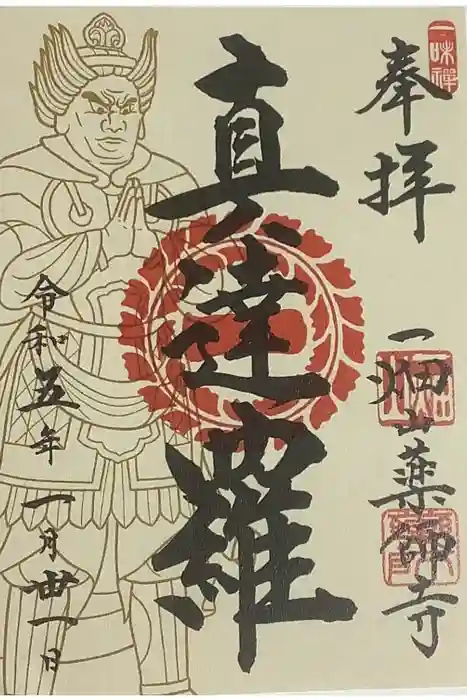 一味禅
奉拝
真達羅
一畑山薬師寺
令和五年一月卅一日